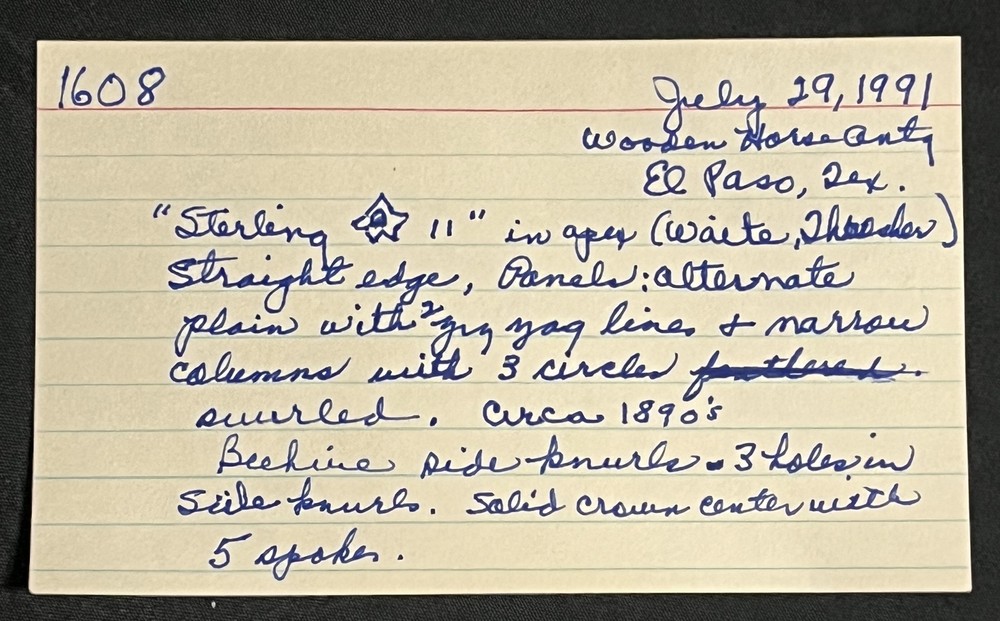 1608
July 29, 1991
Wooden Horse Antq
El Paso, Tex.
"Sterling 11" in apex (Waite, Thresher)
Straight edge, Panels: alternate
plain with 2 zig zag lines & narrow
columns with 3 circles feathered.
swirled. Circa 1890's
Beehive side knurls - 3 holes in
Side knurls. Solid crown center with
5 spokes.